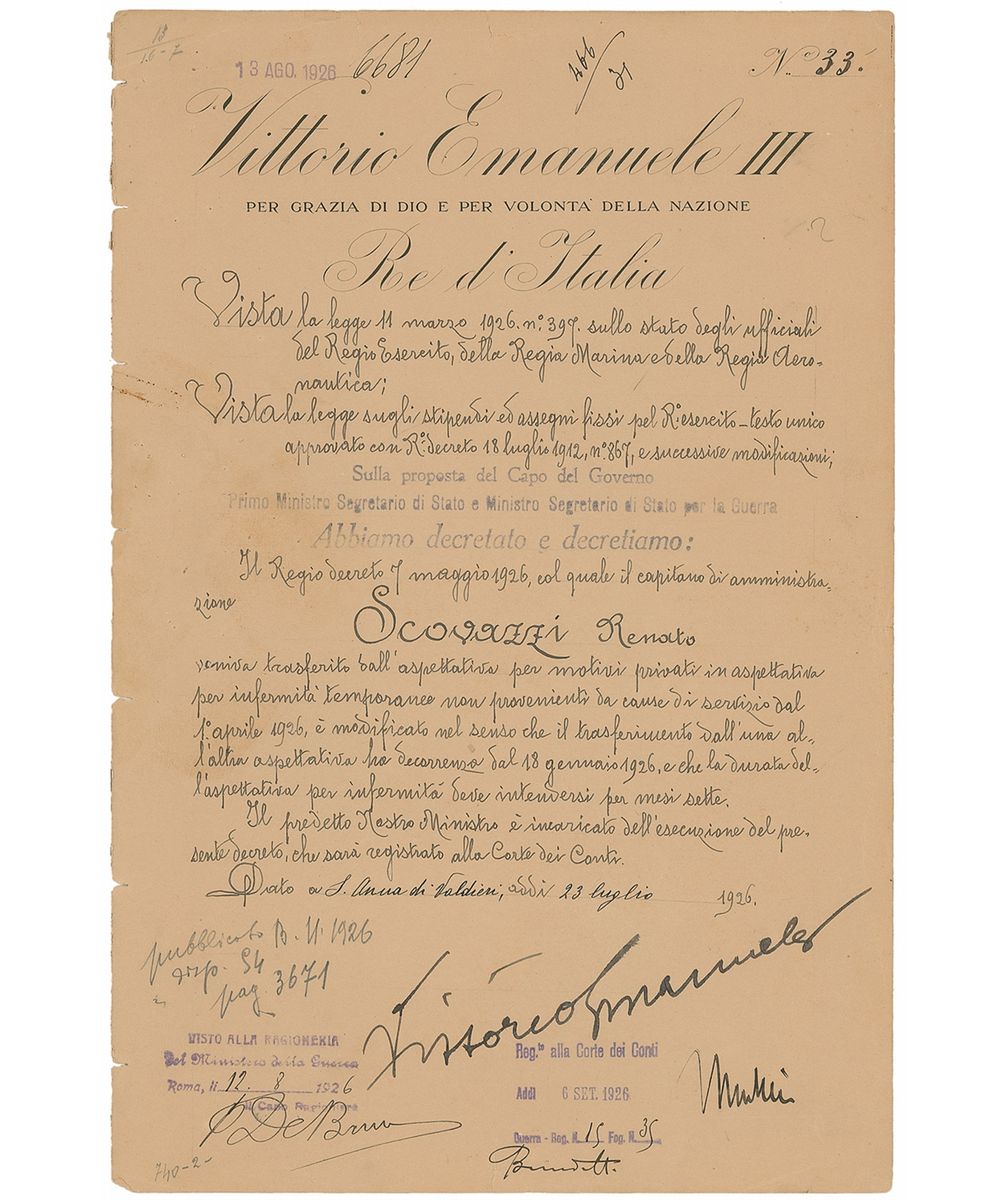 13
16-7
13 AGO. 1926 6681
466/31
N.º 33.
Vittorio Emanuele III
PER GRAZIA DI DIO E PER VOLONTA' DELLA NAZIONE
Re d'Italia
Vista la legge 11 marzo 1926. n.º 397. sullo stato degli ufficiali
del Regio Esercito, della Regia Marina e della Regia Aero-
nautica;
Vista la legge sugli stipendi ed assegni fissi pel R.º esercito - testo unico
approvato con R.º decreto 18 luglio 1912, n.º 867, e successive modificazioni;
Sulla proposta del Capo del Governo
Primo Ministro Segretario di Stato e Ministro Segretario di Stato per la Guerra
Abbiamo decretato e decretiamo:
Il Regio decreto 7 maggio 1926, col quale il capitano di amministra-
zione
Scovazzi Renato
veniva trasferito dall'aspettativa per motivi privati in aspettativa
per infermità temporanee non provenienti da cause di servizio dal
1º aprile 1926, è modificato nel senso che il trasferimento dall'una al-
l'altra aspettativa ha decorrenza dal 18 gennaio 1926, e che la durata del-
l'aspettativa per infermità deve intendersi per mesi sette.
Il predetto Nostro Ministro è incaricato dell'esecuzione del pre-
sente decreto, che sarà registrato alla Corte dei Conti.
Dato a S. Anna di Valdieri, addì 23 luglio 1926.
pubblicato B. U. 1926
disp. 54
pag. 3671
Vittorio Emanuele
VISTO ALLA RAGIONERIA
del Ministero della Guerra
Roma, lì 12. 8 1926
Il Capo Ragioniere
Reg.to alla Corte dei Conti
Addì 6 SET. 1926
Guerra - Reg. N. 15 Fog. N. 35
740-2-